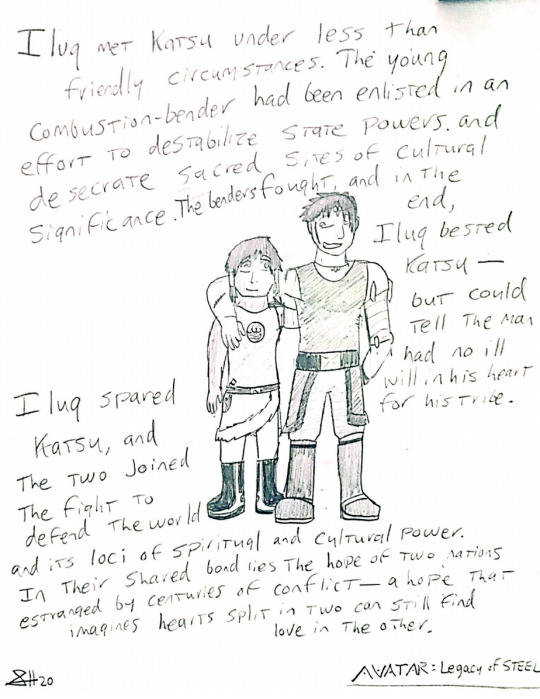 Iluq met Katsu under less than
friendly circumstances. The young
combustion-bender had been enlisted in an
effort to destabilize state powers. and
desecrate sacred sites of cultural
significance. The benders fought, and in the
end,
Iluq bested
Katsu —
but could
tell the man
had no ill
will in his heart
for his tribe.
Iluq spared
Katsu, and
the two joined
the fight to
defend the world
and its loci of spiritual and cultural power.
In their shared bond lies the hope of two nations
estranged by centuries of conflict — a hope that
imagines hearts split in two can still find
love in the other.
20
AVATAR: Legacy of STEEL